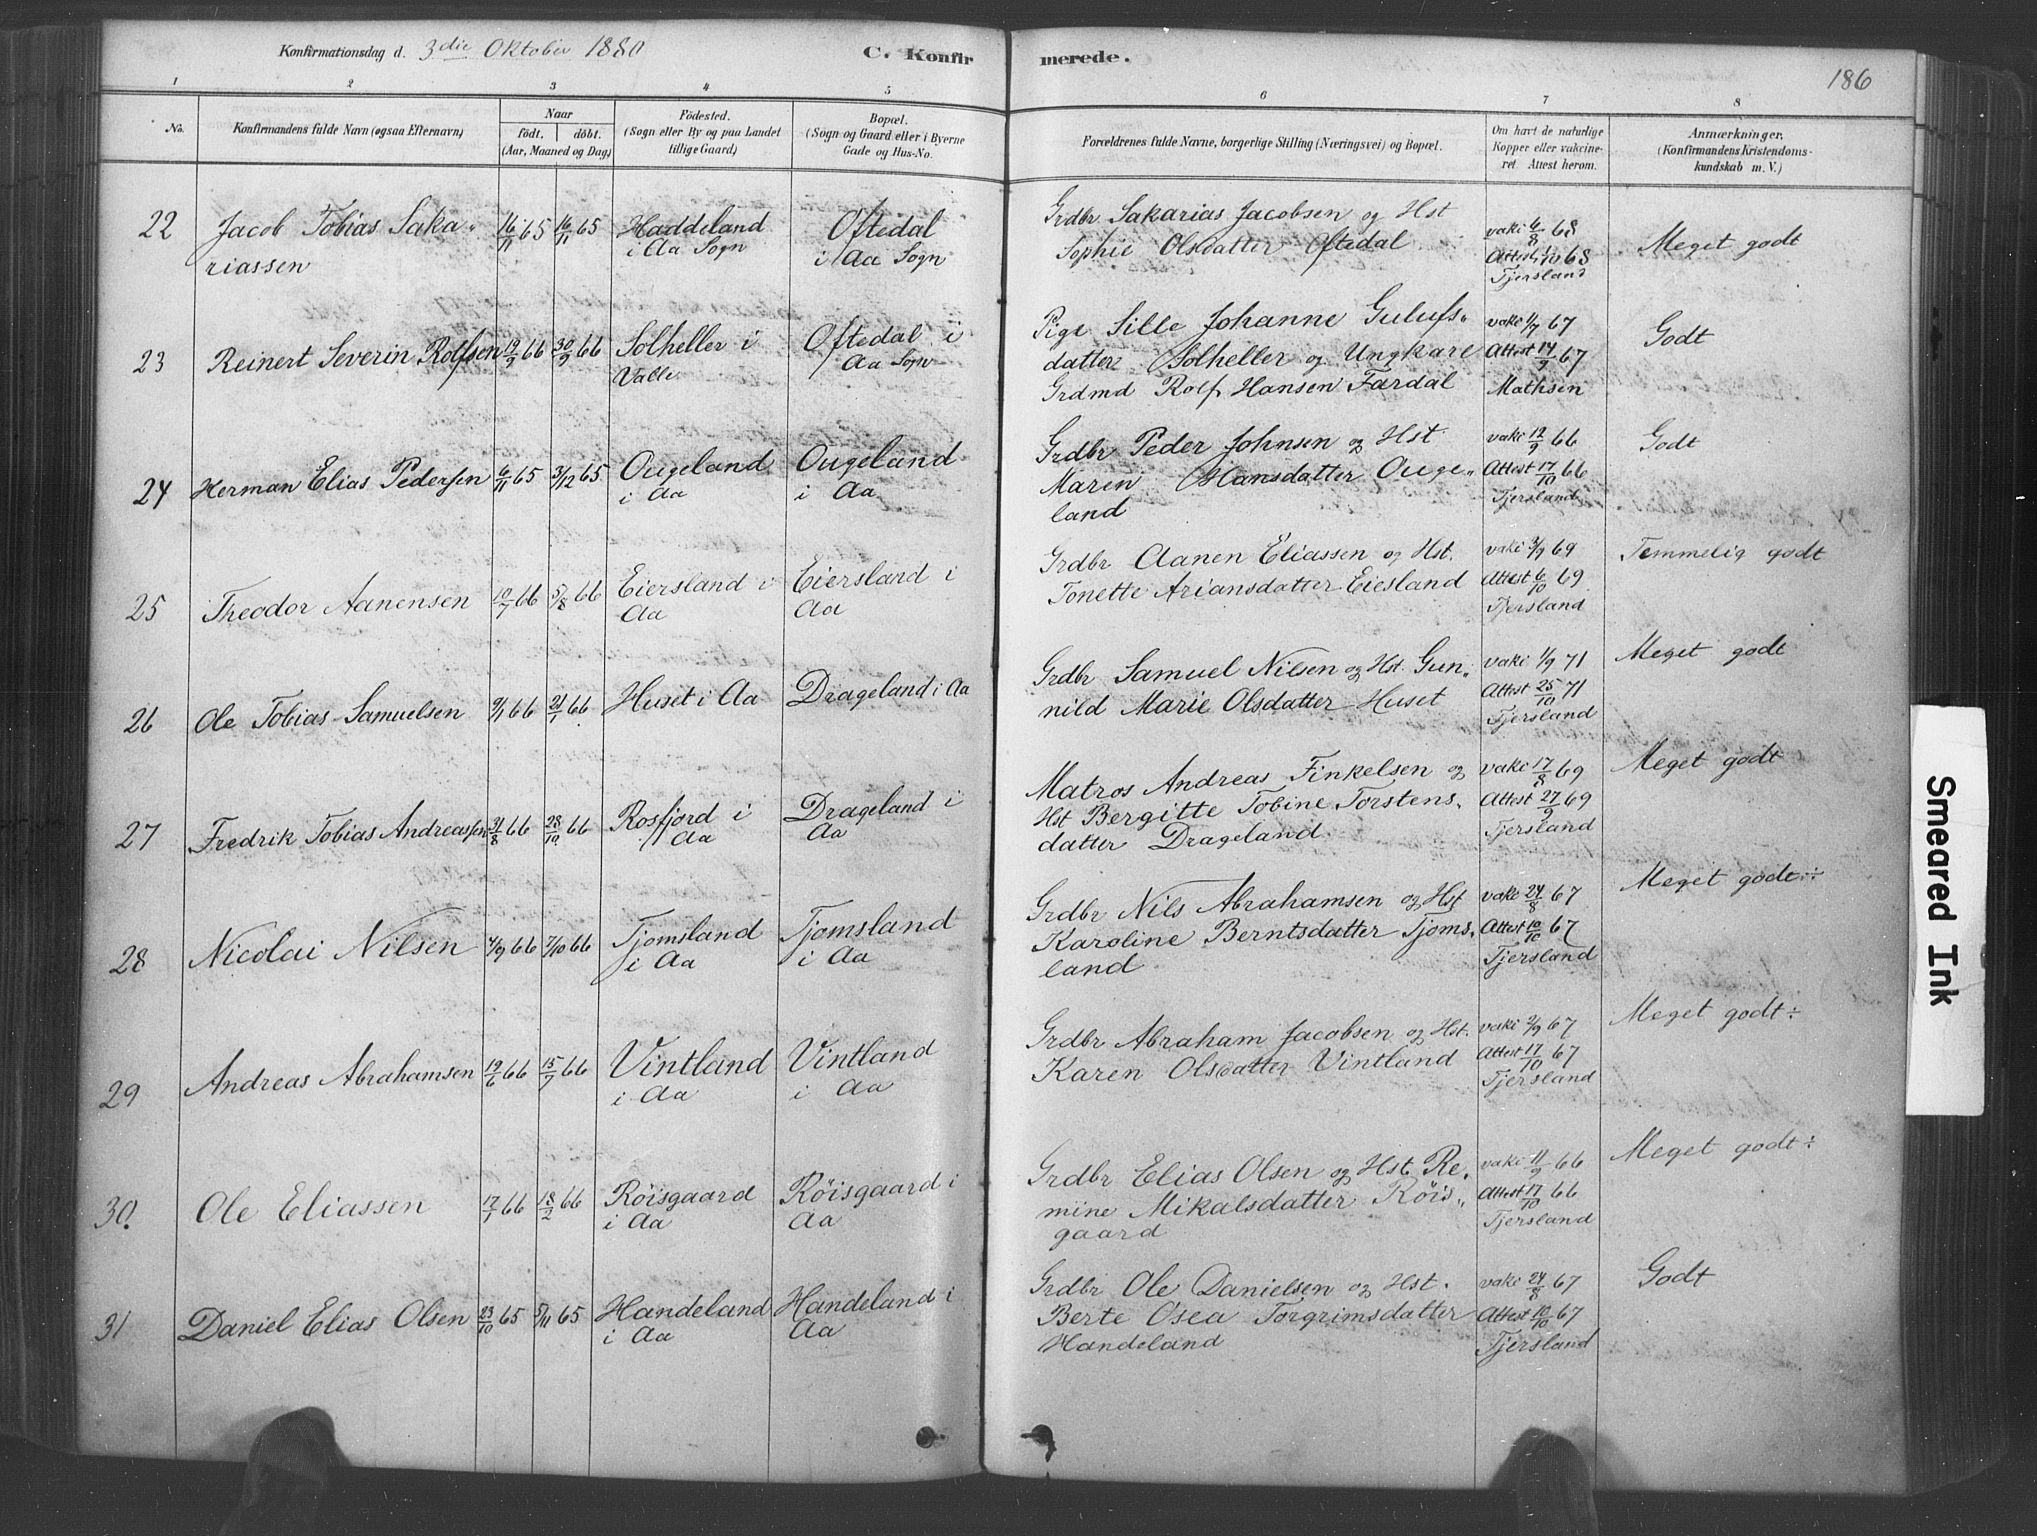 Konfirmationsdag d. 3die Oktober 1880
C. Konfirmerede.
186
1 2 3 4 5 6 7 8
No.
Konfirmandens fulde Navn (ogsaa Efternavn)
Naar
födt. döbt.
(Aar, Maaned og Dag)
Födested.
(Sogn eller By og paa Landet
tillige Gaard)
Bopæl.
(Sogn og Gaard eller i Byerne
Gade og Hus-No.
Forældrenes fulde Navne, borgerlige Stilling (Næringsvei) og Bopæl.
Om havt de naturlige
Kopper eller vakcine-
ret Attest herom.
Anmærkninger,
(Konfirmandens Kristendoms-
kundskab m. V.)
22 Jacob Tobias Saka-
riassen
16/11 65 16/11 65
Haddeland
i Aa Sogn
Oftedal
i Aa Sogn
Grdbr Sakarias Jacobsen og Hst
Sophie Olsdatter Oftedal
vaki 6/8 68
Attest 1/10 68
Tjersland
Meget godt
23 Reinert Severin Rolfsen
19/9 66 30/9 66
Solheller i
Valle
Oftedal i
Aa Sogn
Pige Sille Johanne Gulufs-
datter Solheller og Ungkare
Grdmd Rolf Hansen Færdal
vaki 1/7 67
Attest 14/9 67
Mathsen
Godt
24 Herman Elias Pedersen
6/11 65 3/12 65
Ougeland
i Aa
Ougeland
i Aa
Grdbr Peder Johnsen og Hst
Maren Hansdatter Ouge-
land
vaki 12/9 66
Attest 17/10 66
Tjersland
Godt
25 Theodor Aanensen
10/7 66 5/8 66
Eiersland i
Aa
Eiersland i
Aa
Grdbr Aanen Eliassen og Hst.
Tonette Ariansdatter Eiesland
vaki 3/9 69
Attest 6/10 69
Tjersland
Temmelig godt
26 Ole Tobias Samuelsen
9/1 66 21/1 66
Huset i Aa
Drageland i Aa
Grdbr Samuel Nilsen og Hst. Gun-
nild Marie Olsdatter Huset
vaki 1/9 71
Attest 25/10 71
Tjersland
Meget godt
27 Fredrik Tobias Andreassen
31/8 66 28/10 66
Rosfjord i
Aa
Drageland i
Aa
Matros Andreas Finkelsen og
Hst Bergitte Tobine Torstens-
datter Drageland
vaki 17/8 69
Attest 27/9 69
Tjersland
Meget godt
28 Nicolai Nilsen
4/9 66 7/10 66
Tjomsland
i Aa
Tjomsland
i Aa
Grdbr Nils Abrahamsen og Hst
Karoline Berntsdatter Tjoms-
land
vaki 24/8 67
Attest 10/10 67
Tjersland
Meget godt ÷
29 Andreas Abrahamsen
19/6 66 15/7 66
Vintland
i Aa
Vintland
i Aa
Grdbr Abraham Jacobsen og Hst.
Karen Olsdatter Vintland
vaki 2/9 67
Attest 17/10 67
Tjersland
Meget godt ÷
30. Ole Eliassen
17/1 66 18/2 66
Röisgaard
i Aa
Röisgaard i
Aa
Grdbr Elias Olsen og Hst. Re-
mine Mikalsdatter Röis-
gaard
vaki 11/9 66
Attest 17/10 66
Tjersland
Meget godt ÷
31 Daniel Elias Olsen
23/10 65 5/11 65
Handeland
i Aa
Handeland i
Aa
Grdbr Ole Danielsen og Hst.
Berte Osea Torgrimsdatter
Handeland
vaki 24/8 67
Attest 10/10 67
Tjersland
Godt
Smeared Ink